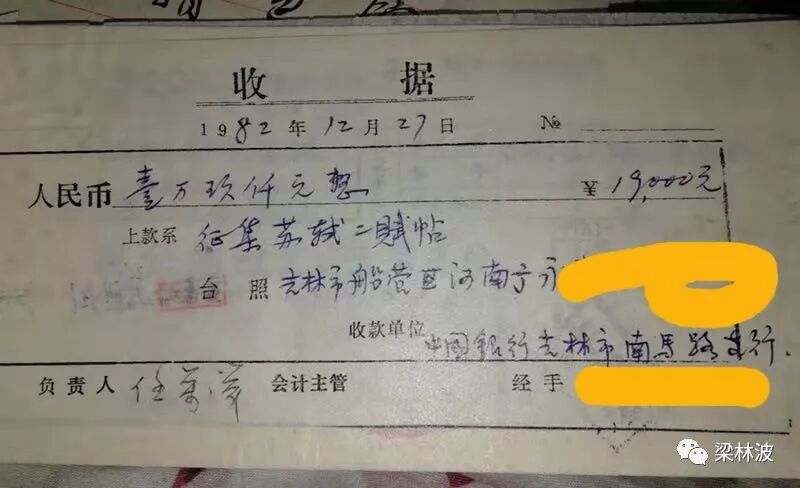 收 据
1982年12月27日 №
人民币 壹万玖仟元整 ¥ 19,000元
上款系 征集苏轼二赋帖
台照 吉林市船营区河南
收款单位 中国銀行吉林市南马路支行.
负责人 任 会计主管 经手
梁林波